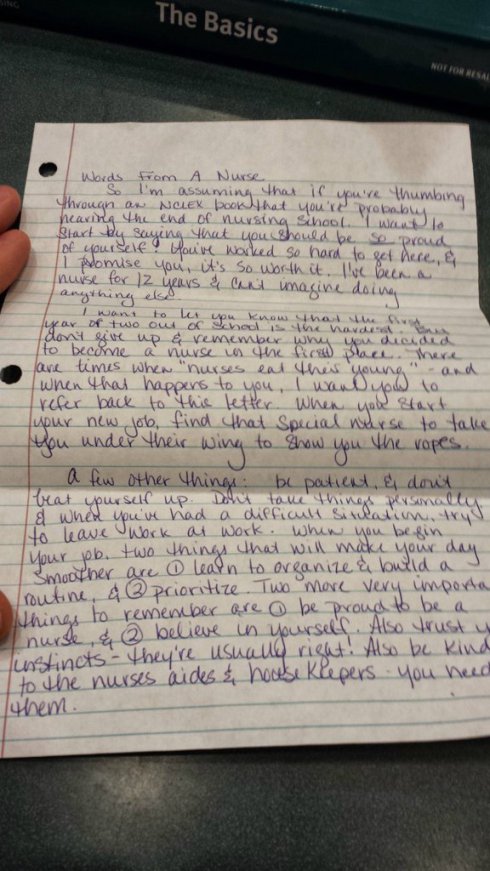 SING
The Basics
NOT FOR RESAL
Words From A Nurse
So I'm assuming that if you're thumbing
through an NCLEX book that you're probably
nearing the end of nursing school. I want to
start by saying that you should be so proud
of yourself! You've worked so hard to get here, &
I promise you, it's so worth it. I've been a
nurse for 12 years & can't imagine doing
anything else.
I want to let you know that the first
year or two out of school is the hardest. But
don't give up & remember why you decided
to become a nurse in the first place. There
are times when "nurses eat their young" - and
when that happens to you, I want you to
refer back to this letter. When you start
your new job, find that special nurse to take
you under their wing to show you the ropes.
A few other things: be patient, & don't
beat yourself up. Don't take things personally
& when you've had a difficult situation, try
to leave work at work. When you begin
your job, two things that will make your day
smoother are ① learn to organize & build a
routine, & ② prioritize. Two more very importa
things to remember are ① be proud to be a
nurse, & ② believe in yourself. Also trust y
instincts - they're usually right! Also be kind
to the nurses aides & housekeepers - you need
them.